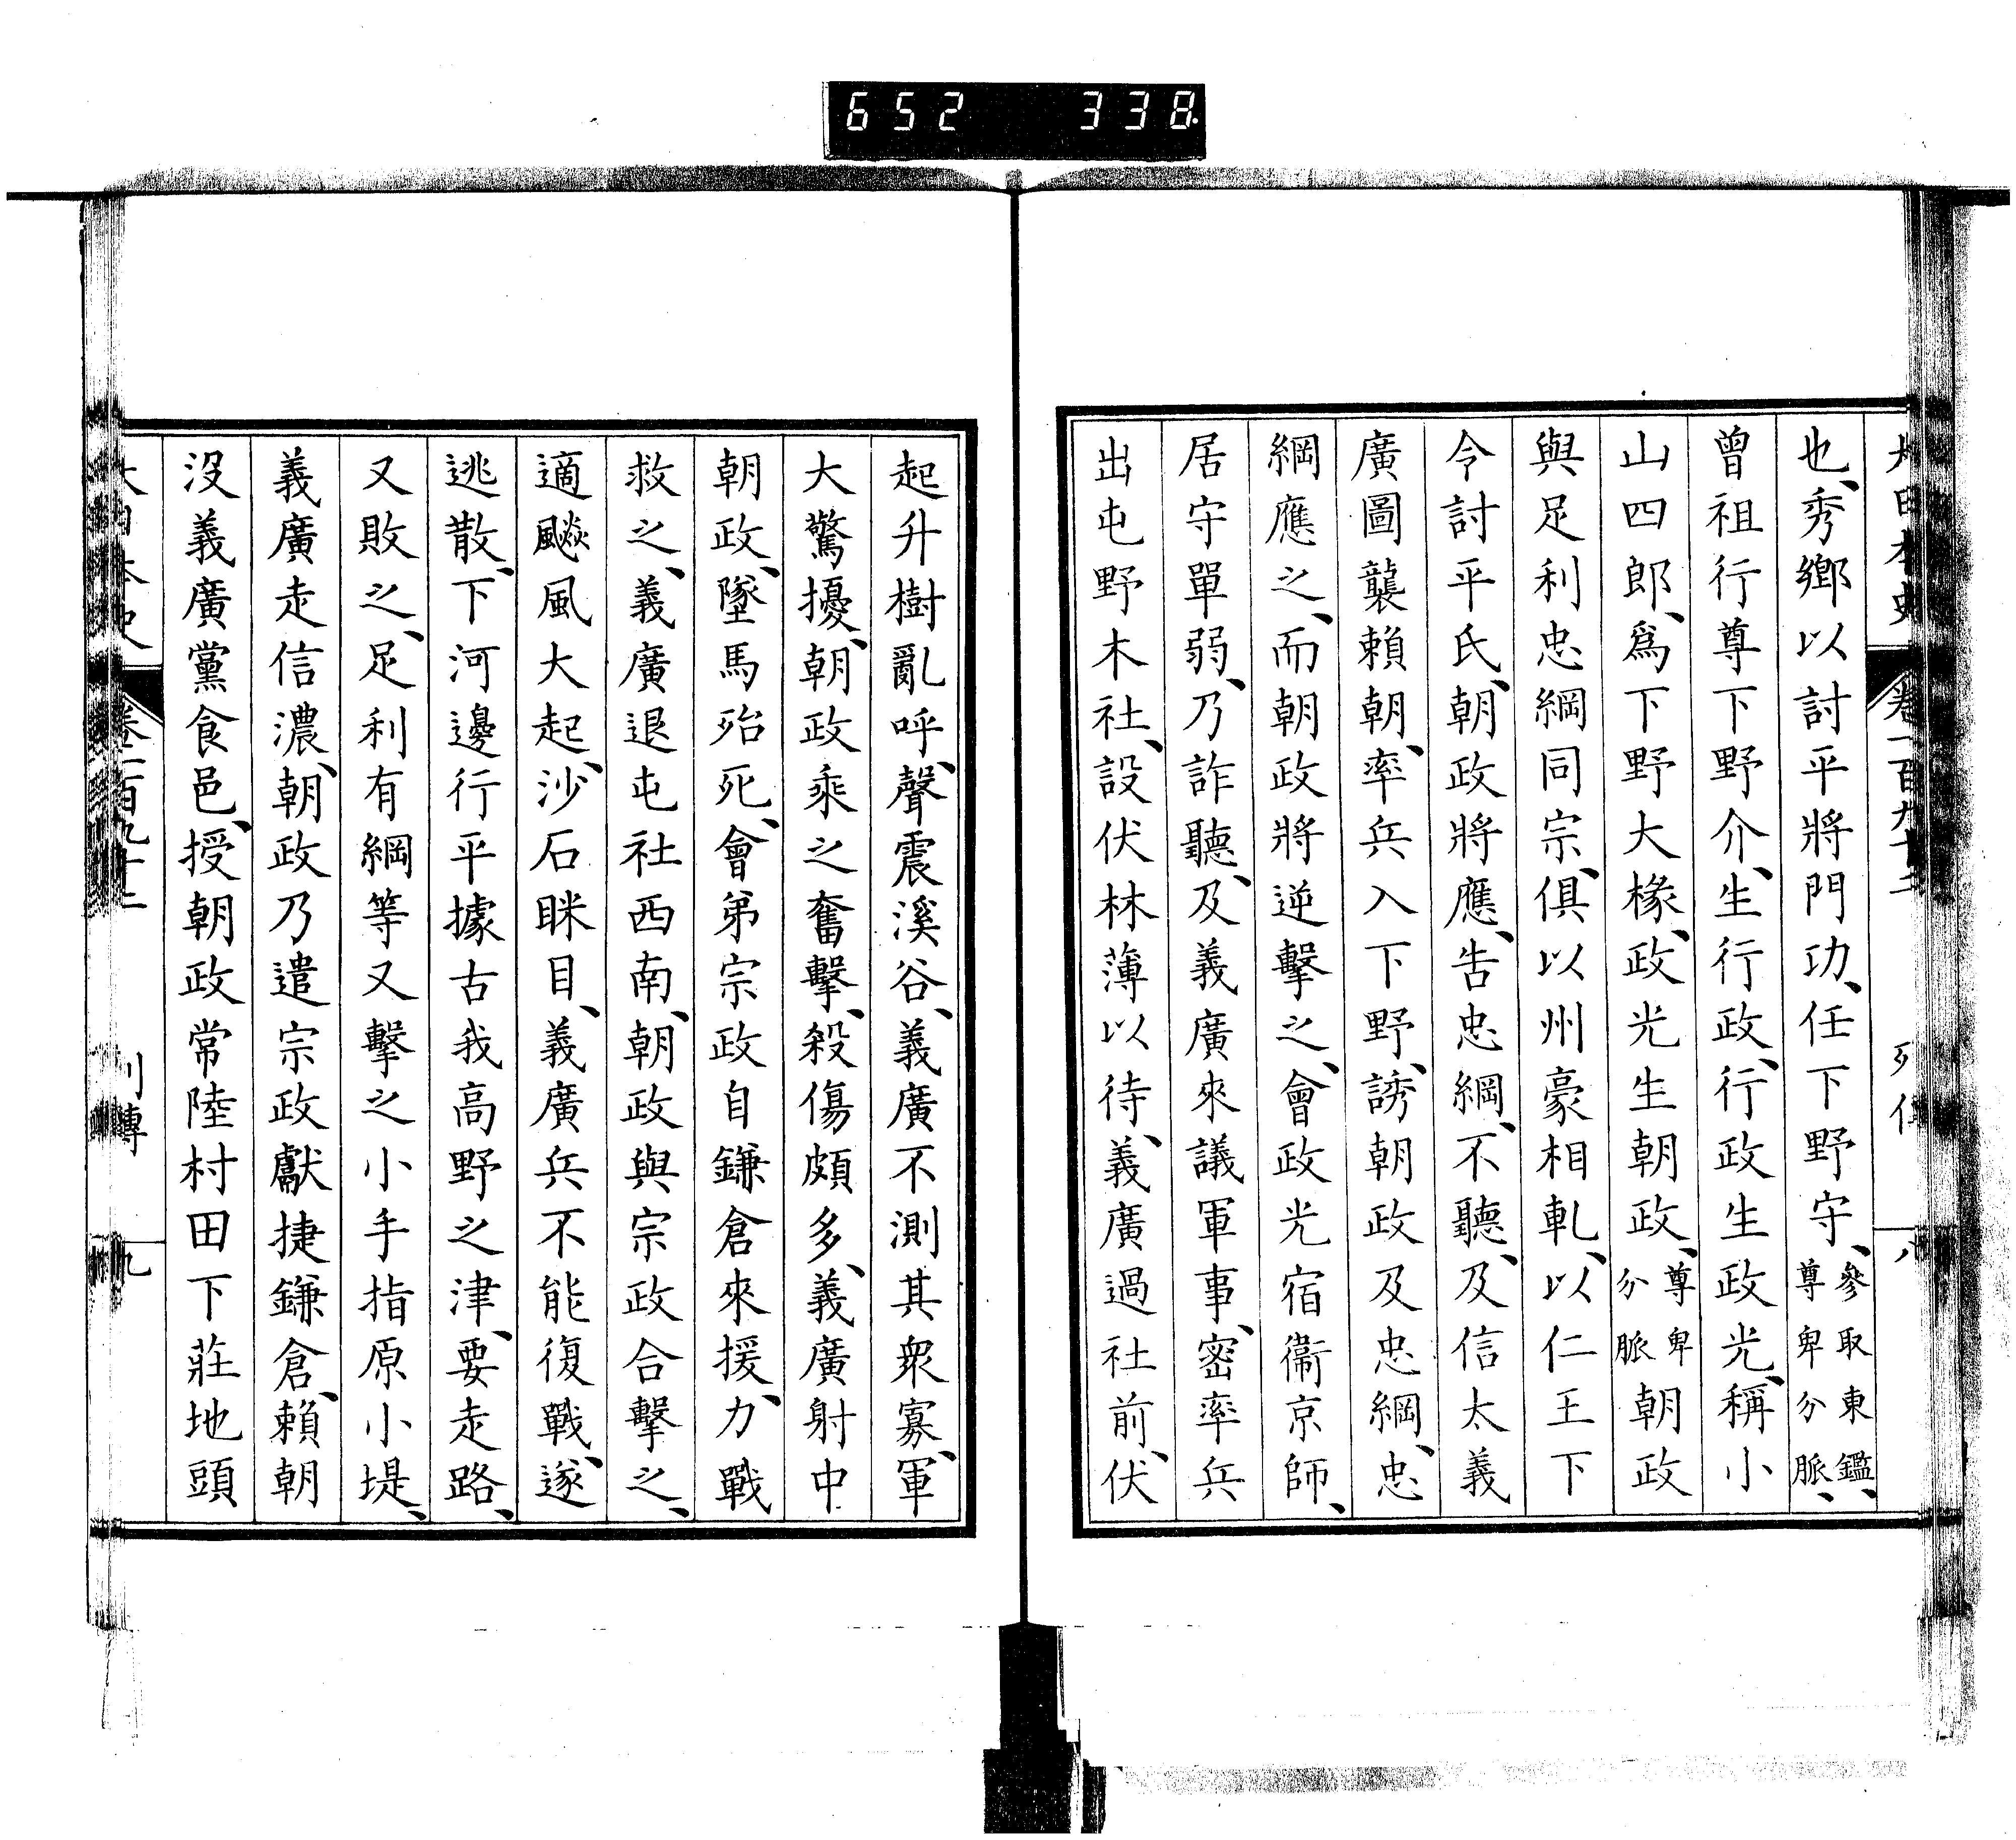 652 338
大日本史 卷一百九十二 列傳 八
也、秀鄉以討平將門功、任下野守、參取東鑑、尊卑分脈、
曾祖行尊下野介、生行政、行政生政光、稱小
山四郎、爲下野大掾、政光生朝政、尊卑分脈朝政
與足利忠綱同宗、俱以州豪相軋、以仁王下
令討平氏、朝政將應、告忠綱、不聽、及信太義
廣圖襲賴朝、率兵入下野、誘朝政及忠綱、忠
綱應之、而朝政將逆擊之、會政光宿衞京師、
居守單弱、乃詐聽、及義廣來議軍事、密率兵
出屯野木社、設伏林薄以待、義廣過社前、伏
起升樹亂呼、聲震溪谷、義廣不測其衆寡、軍
大驚擾、朝政乘之奮擊、殺傷頗多、義廣射中
朝政、墜馬殆死、會弟宗政自鎌倉來援、力戰
救之、義廣退屯社西南、朝政與宗政合擊之、
適飈風大起、沙石眯目、義廣兵不能復戰、遂
逃散、下河邊行平據古我高野之津、要走路、
又敗之、足利有綱等又擊之小手指原小堤、
義廣走信濃、朝政乃遣宗政獻捷鎌倉、賴朝
沒義廣黨食邑、授朝政常陸村田下莊地頭
大日本史 卷一百九十二 列傳 九